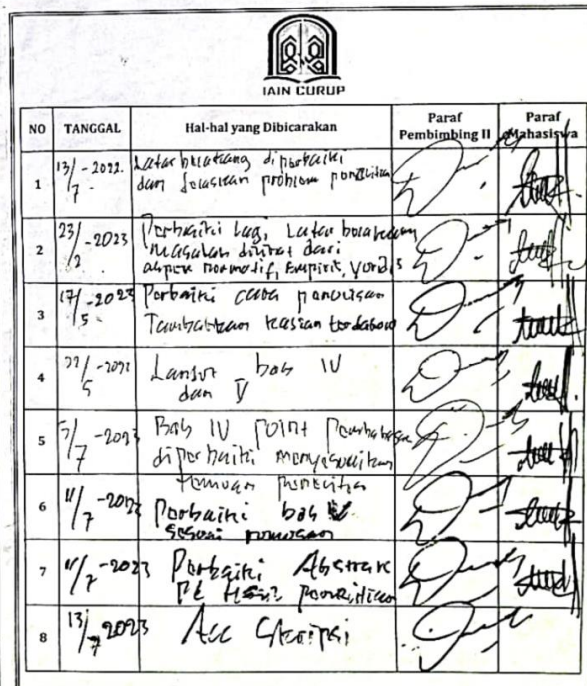 IAIN CURUP
NO TANGGAL Hal-hal yang Dibicarakan Paraf Pembimbing II Paraf Mahasiswa
1 13/7-2022. Latar belakang diperbaiki
dan fokuskan problem penelitian
2 23/2-2023 Perbaiki lagi, Latar belakang
Masalah dilihat dari
aspek normatif, Empiris, Yuridis
3 17/5-2023 Perbaiki cara penulisan
Tambahkan kajian terdahulu
4 Lanjut bab IV
dan V
5 Bab IV point Pembahasan
diperbaiki menyesuaikan
temuan penelitian
6 11/7-2023 Perbaiki bab
sesuai
7 11/7-2023 Perbaiki Abstrak
Hasil penelitian
8 13/7 2023 Acc Skripsi